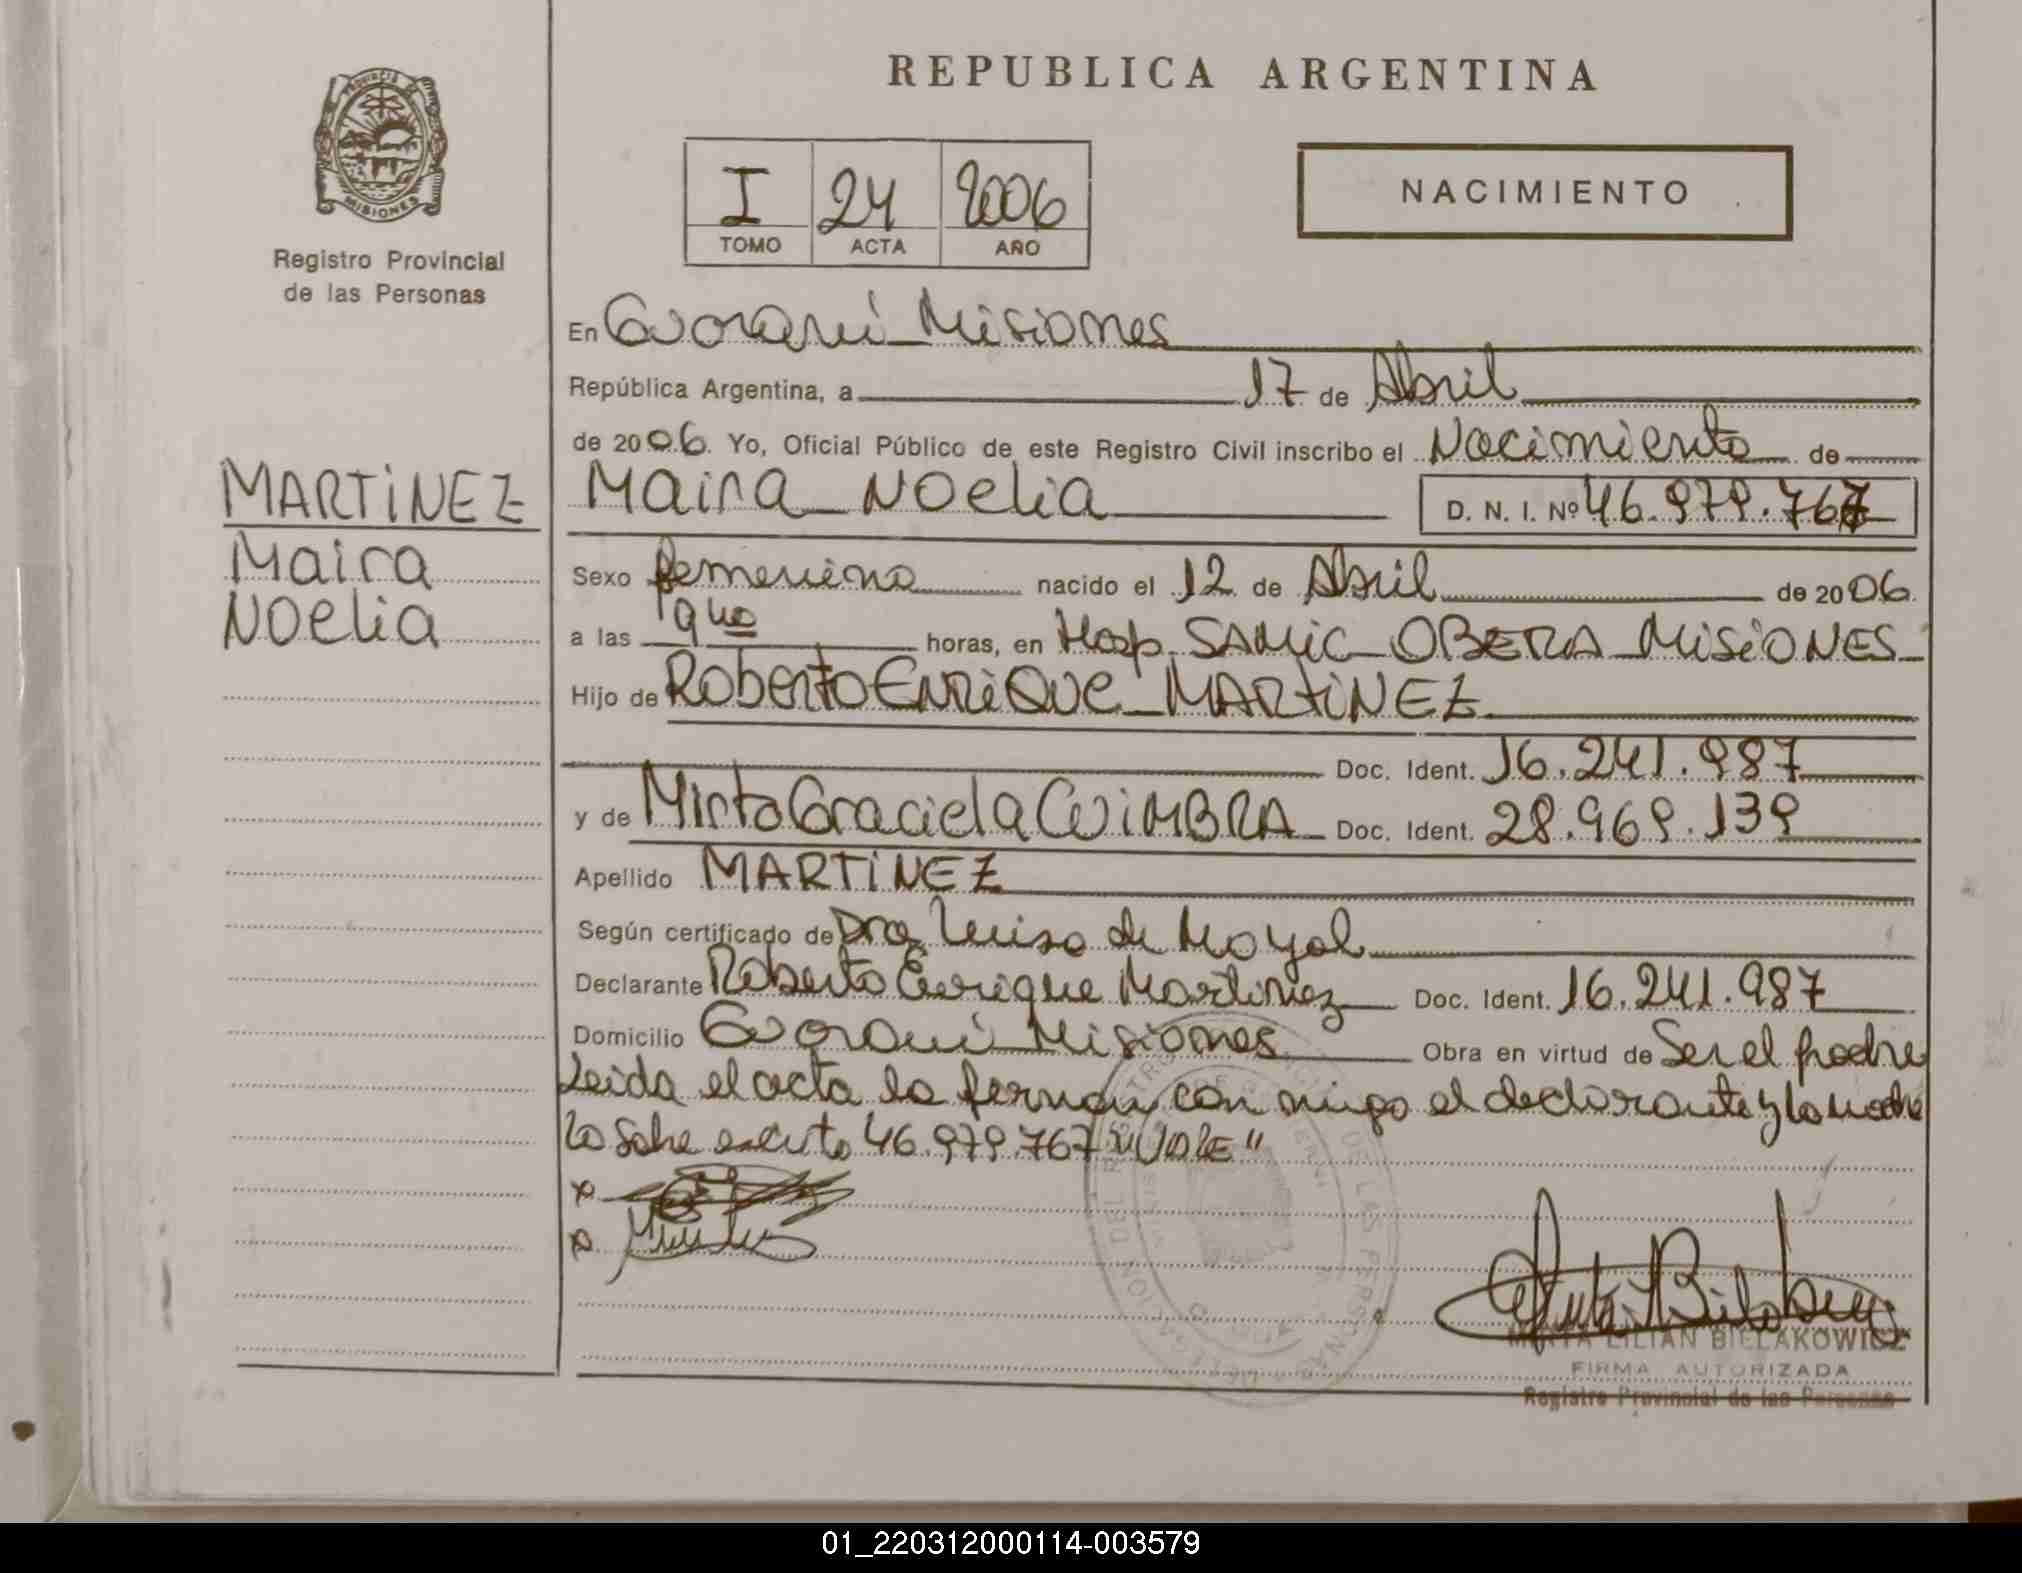 REPUBLICA ARGENTINA
PROVINCIA DE MISIONES
Registro Provincial
de las Personas
I 24 2006
TOMO ACTA AÑO
NACIMIENTO
En Guaraní Misiones
República Argentina, a 17 de Abril
de 2006. Yo, Oficial Público de este Registro Civil inscribo el Nacimiento de
MARTINEZ
Maira
Noelia
Maira Noelia D. N. I. Nº 46.979.767
Sexo femenino nacido el 12 de Abril de 2006.
a las horas, en Hosp. SAMIC OBERA MISIONES
Hijo de Roberto ENRiQUE MARTiNEZ
Doc. Ident. 16.241.987
y de Mirta Graciela CUiMBRA Doc. Ident. 28.969.139
Apellido MARTiNEZ
Según certificado de Dra Luisa de Moyal
Declarante Roberto Enrique Martinez Doc. Ident. 16.241.987
Domicilio Guaraní Misiones Obra en virtud de Ser el padre
Leida el acta la firman con migo el declarante y la madre
Lo Sobre escrito 46.979.767 "VALE"
MIRTA LILIAN BIELAKOWICZ
FIRMA AUTORIZADA
Registro Provincial de las Personas
01_220312000114-003579